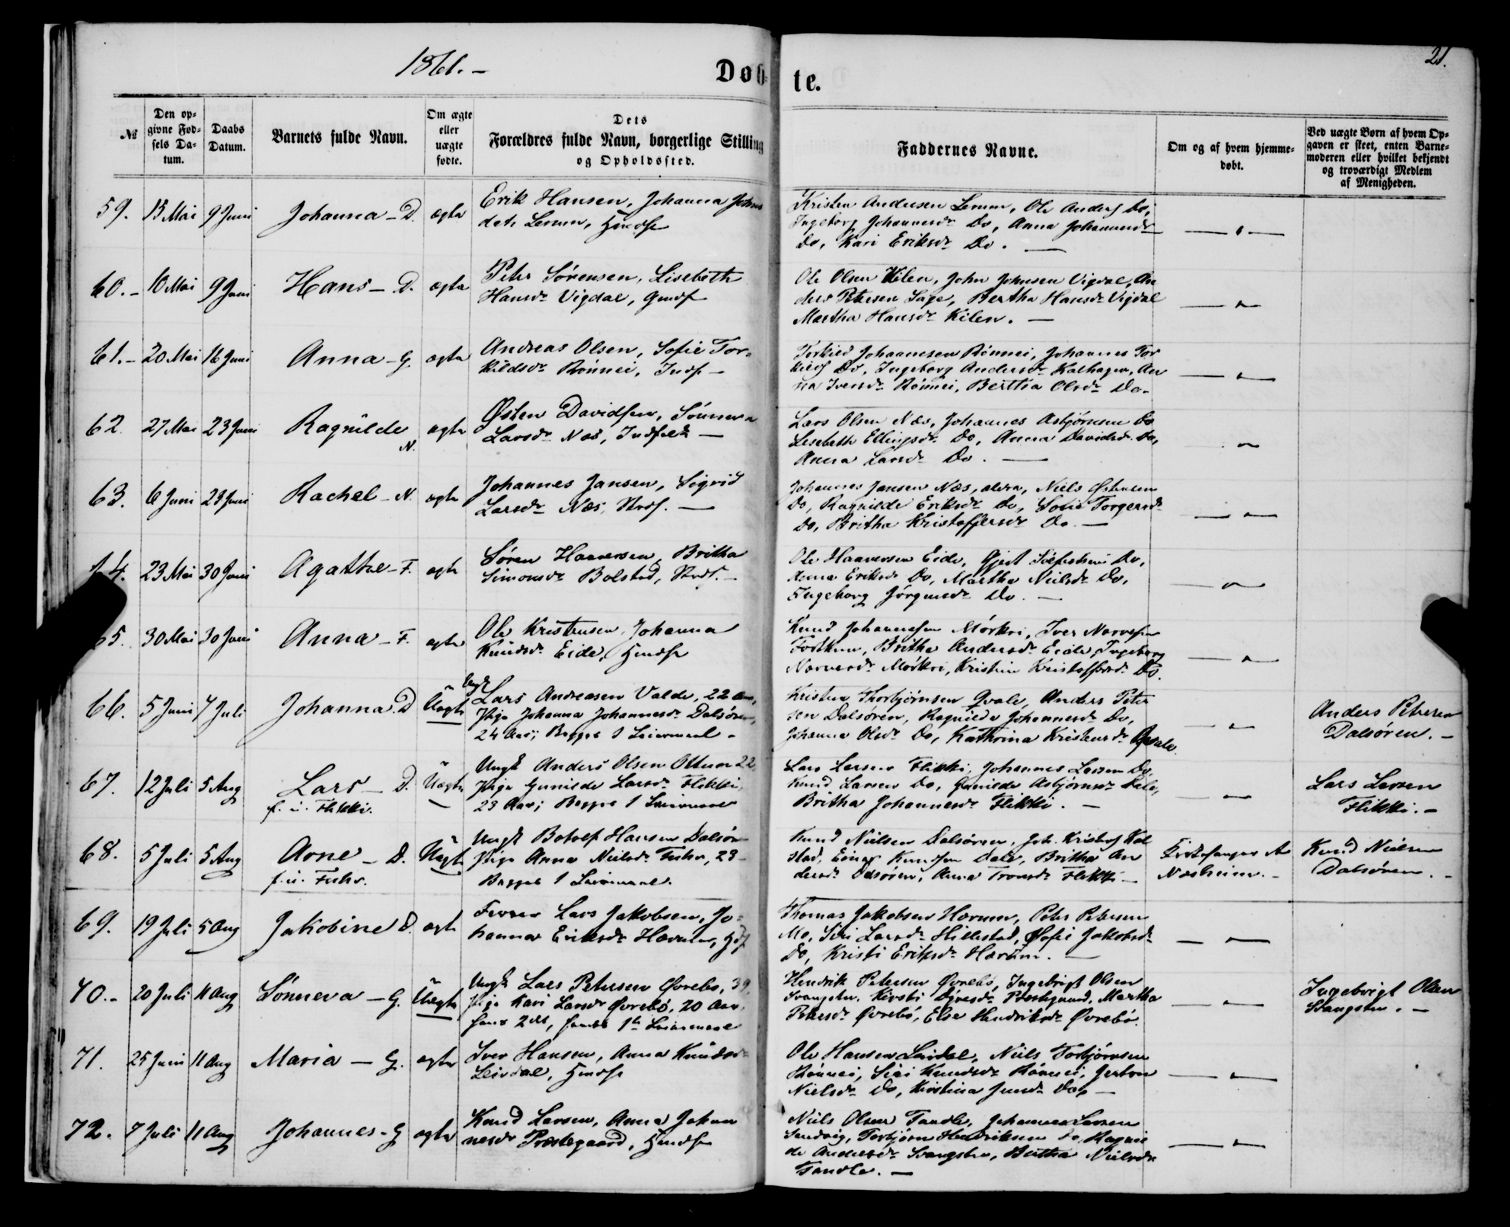 1861. –
21.
Døbte.
№
Den opgivne Fødsels Datum.
Daabs Datum.
Barnets fulde Navn.
Om ægte eller uægte fødte.
Dets Forældres fulde Navn, borgerlige Stilling og Opholdssted.
Faddernes Navne.
Om og af hvem hjemmedøbt.
Ved uægte Børn af hvem Opgaven er skeet, enten Barnemoderen eller hvilket bekjendt og troværdigt Medlem af Menigheden.
59. 15 Mai 9 Juni Johanna – D. ægte
Erik Hansen, Johanna Johns
datr Lemm, Hmdsf
Kristen Andersen Lemm, Ole Anders Do,
Ingeborg Johannesdr Do, Anna Johannesdr
Do, Kari Eriksdr Do. —
60. – 10 Mai 9 Juni Hans – D. ægte
Peter Sørensen, Lisebeth
Hansdr Vigdal, Gmdsf
Ole Olsen Kilen, John Johnsen Vigdal, An
ders Petersen Sage, Bertha Hansdr Vigdal
Martha Hansdr Kilen. —
61. – 20 Mai 16 Juni Anna – G. ægte
Andreas Olsen, Sofie Tor-
kildsdr Rønnei, Indf –
Torkild Johannesen Rønnei, Johannes Tor
kilds Do, Ingeborg Andersdr Kalhagen, An
na Iversdr Rønnei, Bertha Olsdr Do.
62. 27 Mai 23 Juni Ragnilde N. ægte
Østen Davidsen, Sønneva
Larsdr Næs, Indfolk —
Lars Olsen Næs, Johannes Asbjørnsen Do
Lisebeth Ellingsdr Do, Anna Davidsdr Do,
Anna Larsdr Do. —
63. 6 Juni 23 Juni Rachel – N. ægte
Johannes Jansen, Sigrid
Larsdr Næs, Strdf. —
Johannes Jansen Næs, Niels Østensen
Do, Ragnilde Eriksdr Do, Sofie Torgersdr
Do, Britha Kristoffersdr Do. —
64. 23 Mai 30 Juni Agathe – F. ægte
Søren Haaversen, Britha
Simonsdr Bolstad, Strdf. –
Ole Haaversen Eide, Gjest Do,
Anna Eriksdr Do, Martha Nielsdr Do,
Ingeborg Jørgensdr Do. —
65. 30 Mai 30 Juni Anna – F. ægte
Ole Kristensen, Johanna
Knudsdr Eide, Hmdsf
Knud Johannesen Mørkri, Iver Narvesen
Fortkun, Britha Andersdr Eide, Ingeborg
Narvesdr Mørkri, Kristine Kristoffersdr Do.
66. 5 Juni 7 Juli Johanna D Uægte
Ungk Lars Andreasen Valde, 22 Aar,
Pige Johanna Johannesdr Dalsøren,
24 Aar; Begges 1 Leiermaal –
Kristen Thorbjørnsen Qvale, Anders Peter
sen Dalsøren, Ragnilde Johannesdr Do,
Johanna Olsdr Do, Kathrina Kristensdr Qvale
Anders Petersen
Dalsøren. –
67. 12 Juli 5 Aug Lars – D. Uægte
f. i. Flikki.
Ungk Anders Olsen Ottum 22
Pige Gunilde Larsdr Flikki,
23 Aar; Begges 1 Leiermaal
Lars Larsen Flikki, Johannes Larsen Do,
Knud Larsen Do, Gunilde Asbjørnsdr Dale,
Britha Johannesdr Flikki. –
Lars Larsen
Flikki. –
68. 5 Juli 5 Aug Arne – D. Uægte
f. i. Fuhr.
Ungk Botolf Hansen Dalsør
Pige Anna Nielsdr Fuhr, 23 –
Begges 1 Leiermaal.
Knud Nielsen Dalsøren, Joh. Kristofs Kol
stad, Einar Knudsen Dale, Britha An
dersdr Dalsøren, Anna Tronsdr Flikki –
Kirkesanger A
Næsheim. –
Knud Nielsen
Dalsøren. –
69. 19 Juli 5 Aug Jakobine D. ægt
Lars Jakobsen, Jo-
hanna Eriksdr Havum, Hf
Thomas Jakobsen Havum, Peter Petersen
Mo, Siri Larsdr Hillestad, Sofie Jakobsdr
Do, Kristi Eriksdr Havum. —
70. – 20 Juli 11 Aug Sønneva – G. Uægte
Ungk Lars Petersen Øvrebø, 39,
Pige Kari Larsdr Øvrebø, 20 Aar.
hans 2det, hendes 1te Leiermaal
Hendrik Petersen Øvrebø, Ingebrigt Olsen
Kristi Prestegaard, Martha
Petersdr Øvrebø, Else Hendriksdr Øvrebø.
Ingebrigt Olsen
71. 25 Juni 11 Aug Maria – G. ægte
Iver Hansen, Anna Knudsdr
Leirdal, Hmdsf
Ole Hansen Leirdal, Niels Torbjørnsen
Rønnei, Siri Knudsdr Rønnei,
Nielsdr Do, Kristina Jensdr Do, –
72. 7 Juli 11 Aug Johannes – G ægte
Knud Larsen, Anna Johan
nesdr Prestegaard, Hmdsf
Niels Olsen Tandle, Johannes Larsen
Sandvig, Torbjørn Hendriksen Do, Ragnil
de Andersdr Bertha Nielsdr
Tandle. —